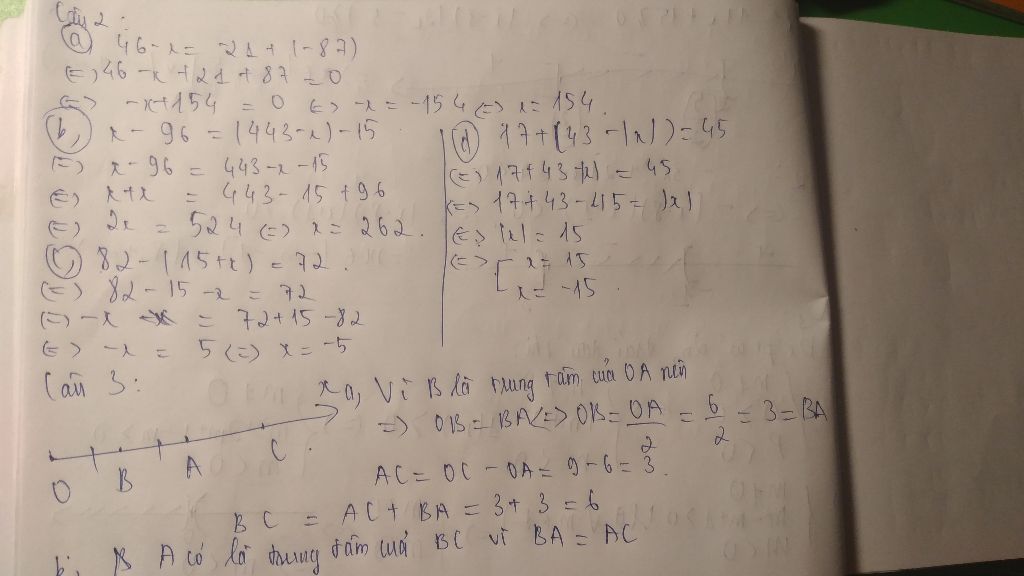 Câu 2:
a) 46-x = -21 + (-87)
(=) 46 -x +21 + 87 = 0
(=> -x+154 = 0 (=> -x = -154 (=> x = 154.
b, x - 96 = (443-x) -15
(=) x - 96 = 443-x -15
(=) x+x = 443 - 15 +96
(=) 2x = 524 (=> x = 262.
c, 82 - (15+x) = 72.
(=) 82 - 15 -x = 72
(=) -x = 72+15 -82
(=> -x = 5 (=) x = -5
d) 17 + (43 - |x|) = 45
(=) 17+43-|x| = 45
(=> 17+43-45 = |x|
(=> |x| = 15
(=> [ x = 15
x = -15.
Câu 3:
x
O B A C
a, Vì B là trung tâm của OA nên
=> OB = BA (=> OB = OA/2 = 6/2 = 3 = BA
AC = OC - OA = 9 - 6 = 3.
BC = AC + BA = 3 + 3 = 6
b, A có là trung tâm của BC vì BA = AC